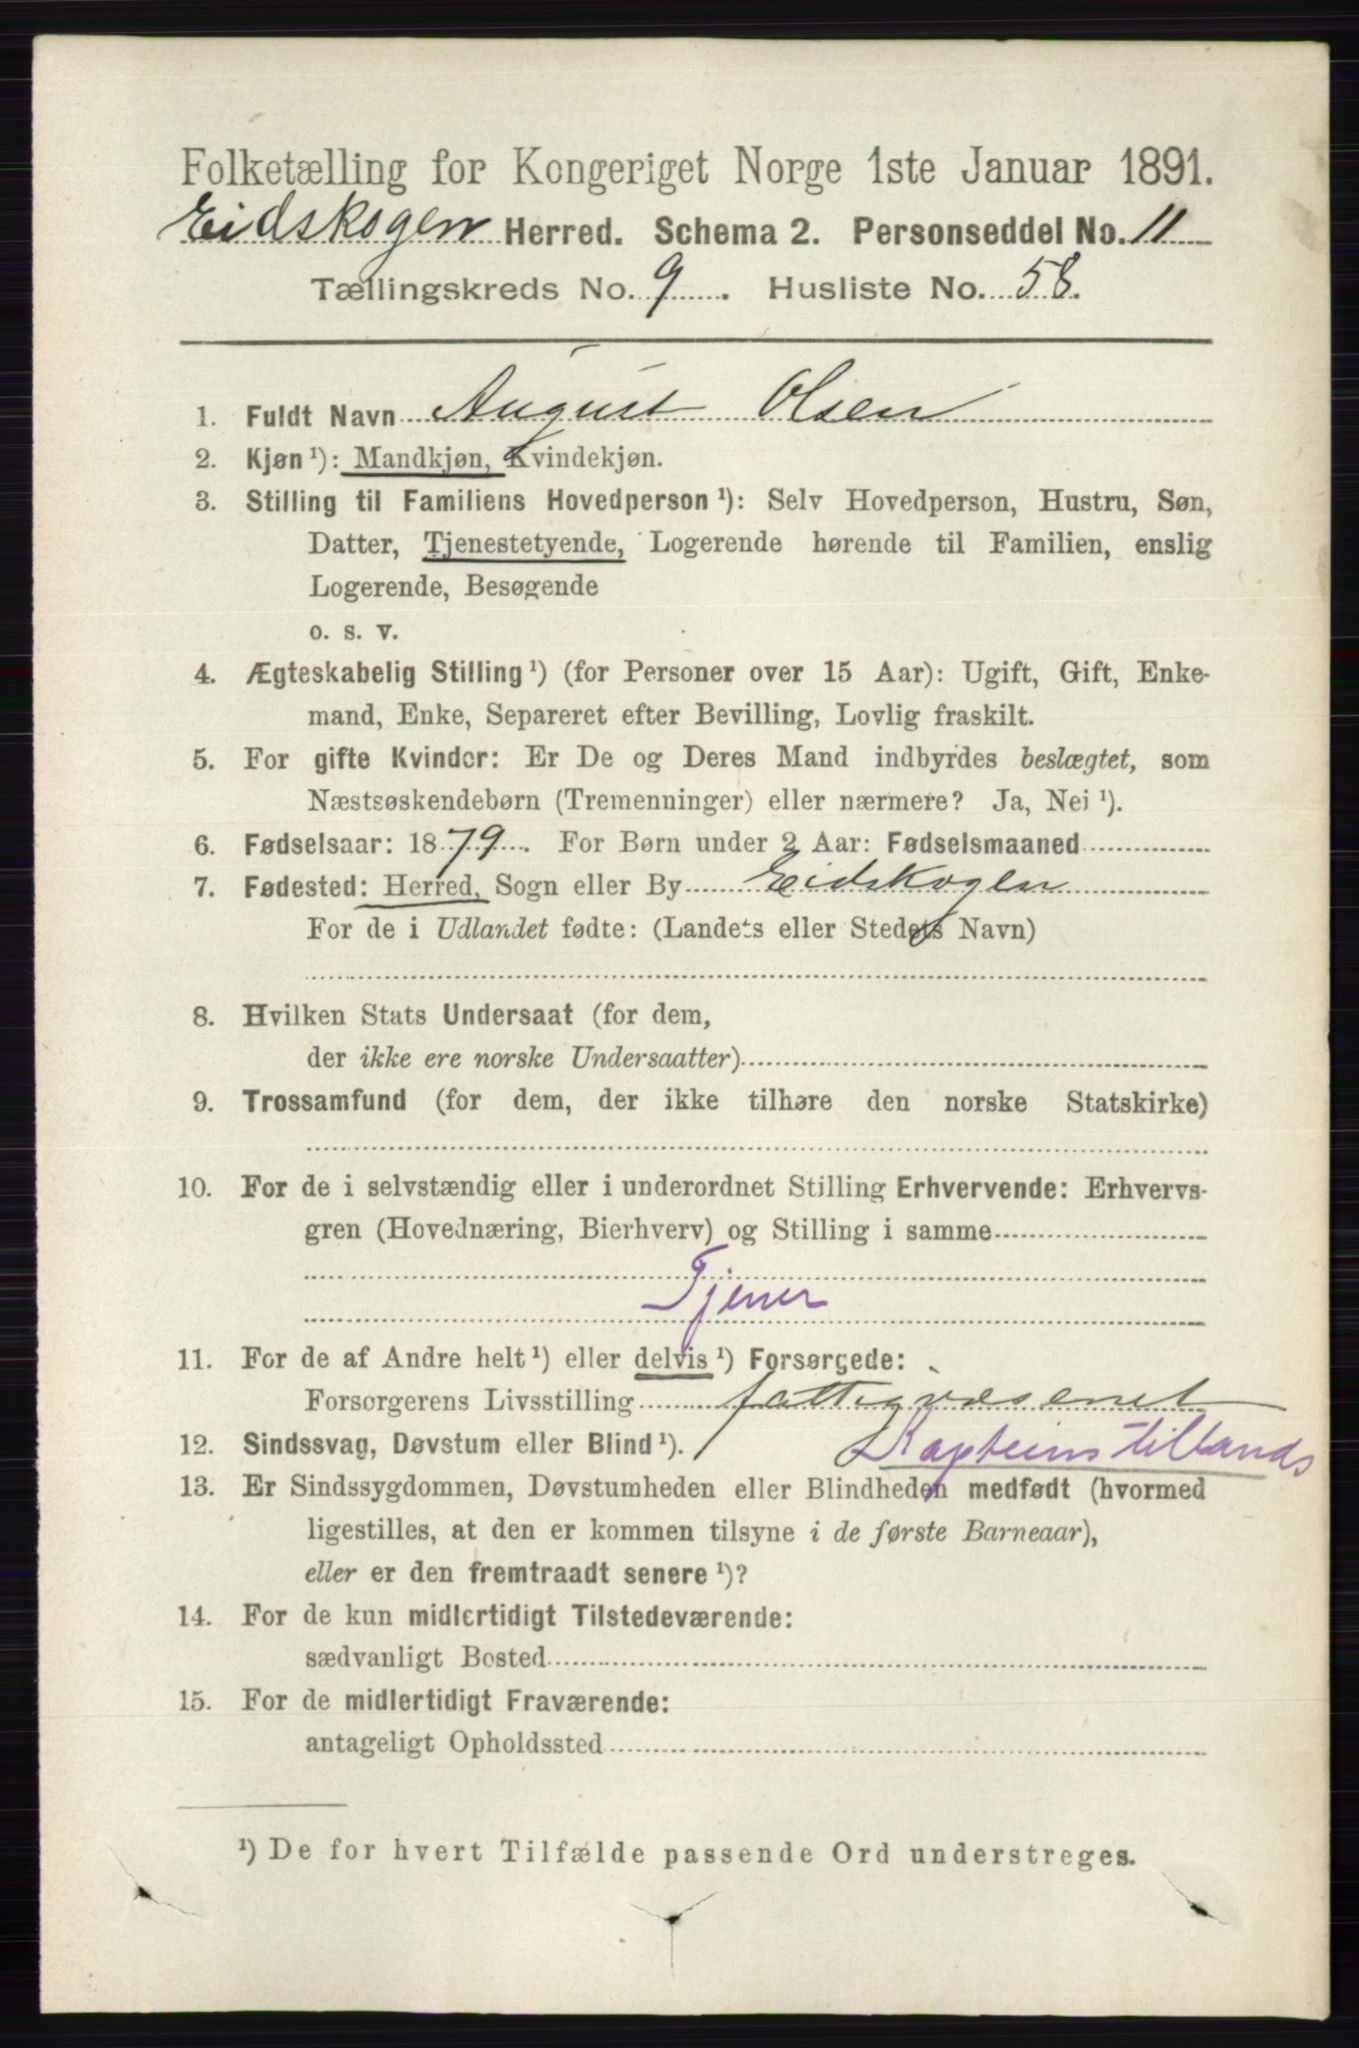 Folketælling for Kongeriget Norge 1ste Januar 1891.
Eidskogen Herred. Schema 2. Personseddel No. 11
Tællingskreds No. 9. Husliste No. 58.
1. Fuldt Navn August Olsen
2. Kjøn ¹): Mandkjøn, Kvindekjøn.
3. Stilling til Familiens Hovedperson ¹): Selv Hovedperson, Hustru, Søn,
Datter, Tjenestetyende, Logerende hørende til Familien, enslig
Logerende, Besøgende
o. s. v.
4. Ægteskabelig Stilling ¹) (for Personer over 15 Aar): Ugift, Gift, Enke-
mand, Enke, Separeret efter Bevilling, Lovlig fraskilt.
5. For gifte Kvinder: Er De og Deres Mand indbyrdes beslægtet, som
Næstsøskendebørn (Tremenninger) eller nærmere? Ja, Nei ¹).
6. Fødselsaar: 1879. For Børn under 2 Aar: Fødselsmaaned
7. Fødested: Herred, Sogn eller By Eidskogen
For de i Udlandet fødte: (Landets eller Stedets Navn)
8. Hvilken Stats Undersaat (for dem,
der ikke ere norske Undersaatter)
9. Trossamfund (for dem, der ikke tilhøre den norske Statskirke)
10. For de i selvstændig eller i underordnet Stilling Erhvervende: Erhvervs-
gren (Hovednæring, Bierhverv) og Stilling i samme
Tjener
11. For de af Andre helt ¹) eller delvis ¹) Forsørgede:
Forsørgerens Livsstilling fattigvæsenet
12. Sindssvag, Døvstum eller Blind ¹). Kapteins
13. Er Sindssygdommen, Døvstumheden eller Blindheden medfødt (hvormed
ligestilles, at den er kommen tilsyne i de første Barneaar),
eller er den fremtraadt senere ¹)?
14. For de kun midlertidigt Tilstedeværende:
sædvanligt Bosted
15. For de midlertidigt Fraværende:
antageligt Opholdssted
¹) De for hvert Tilfælde passende Ord understreges.